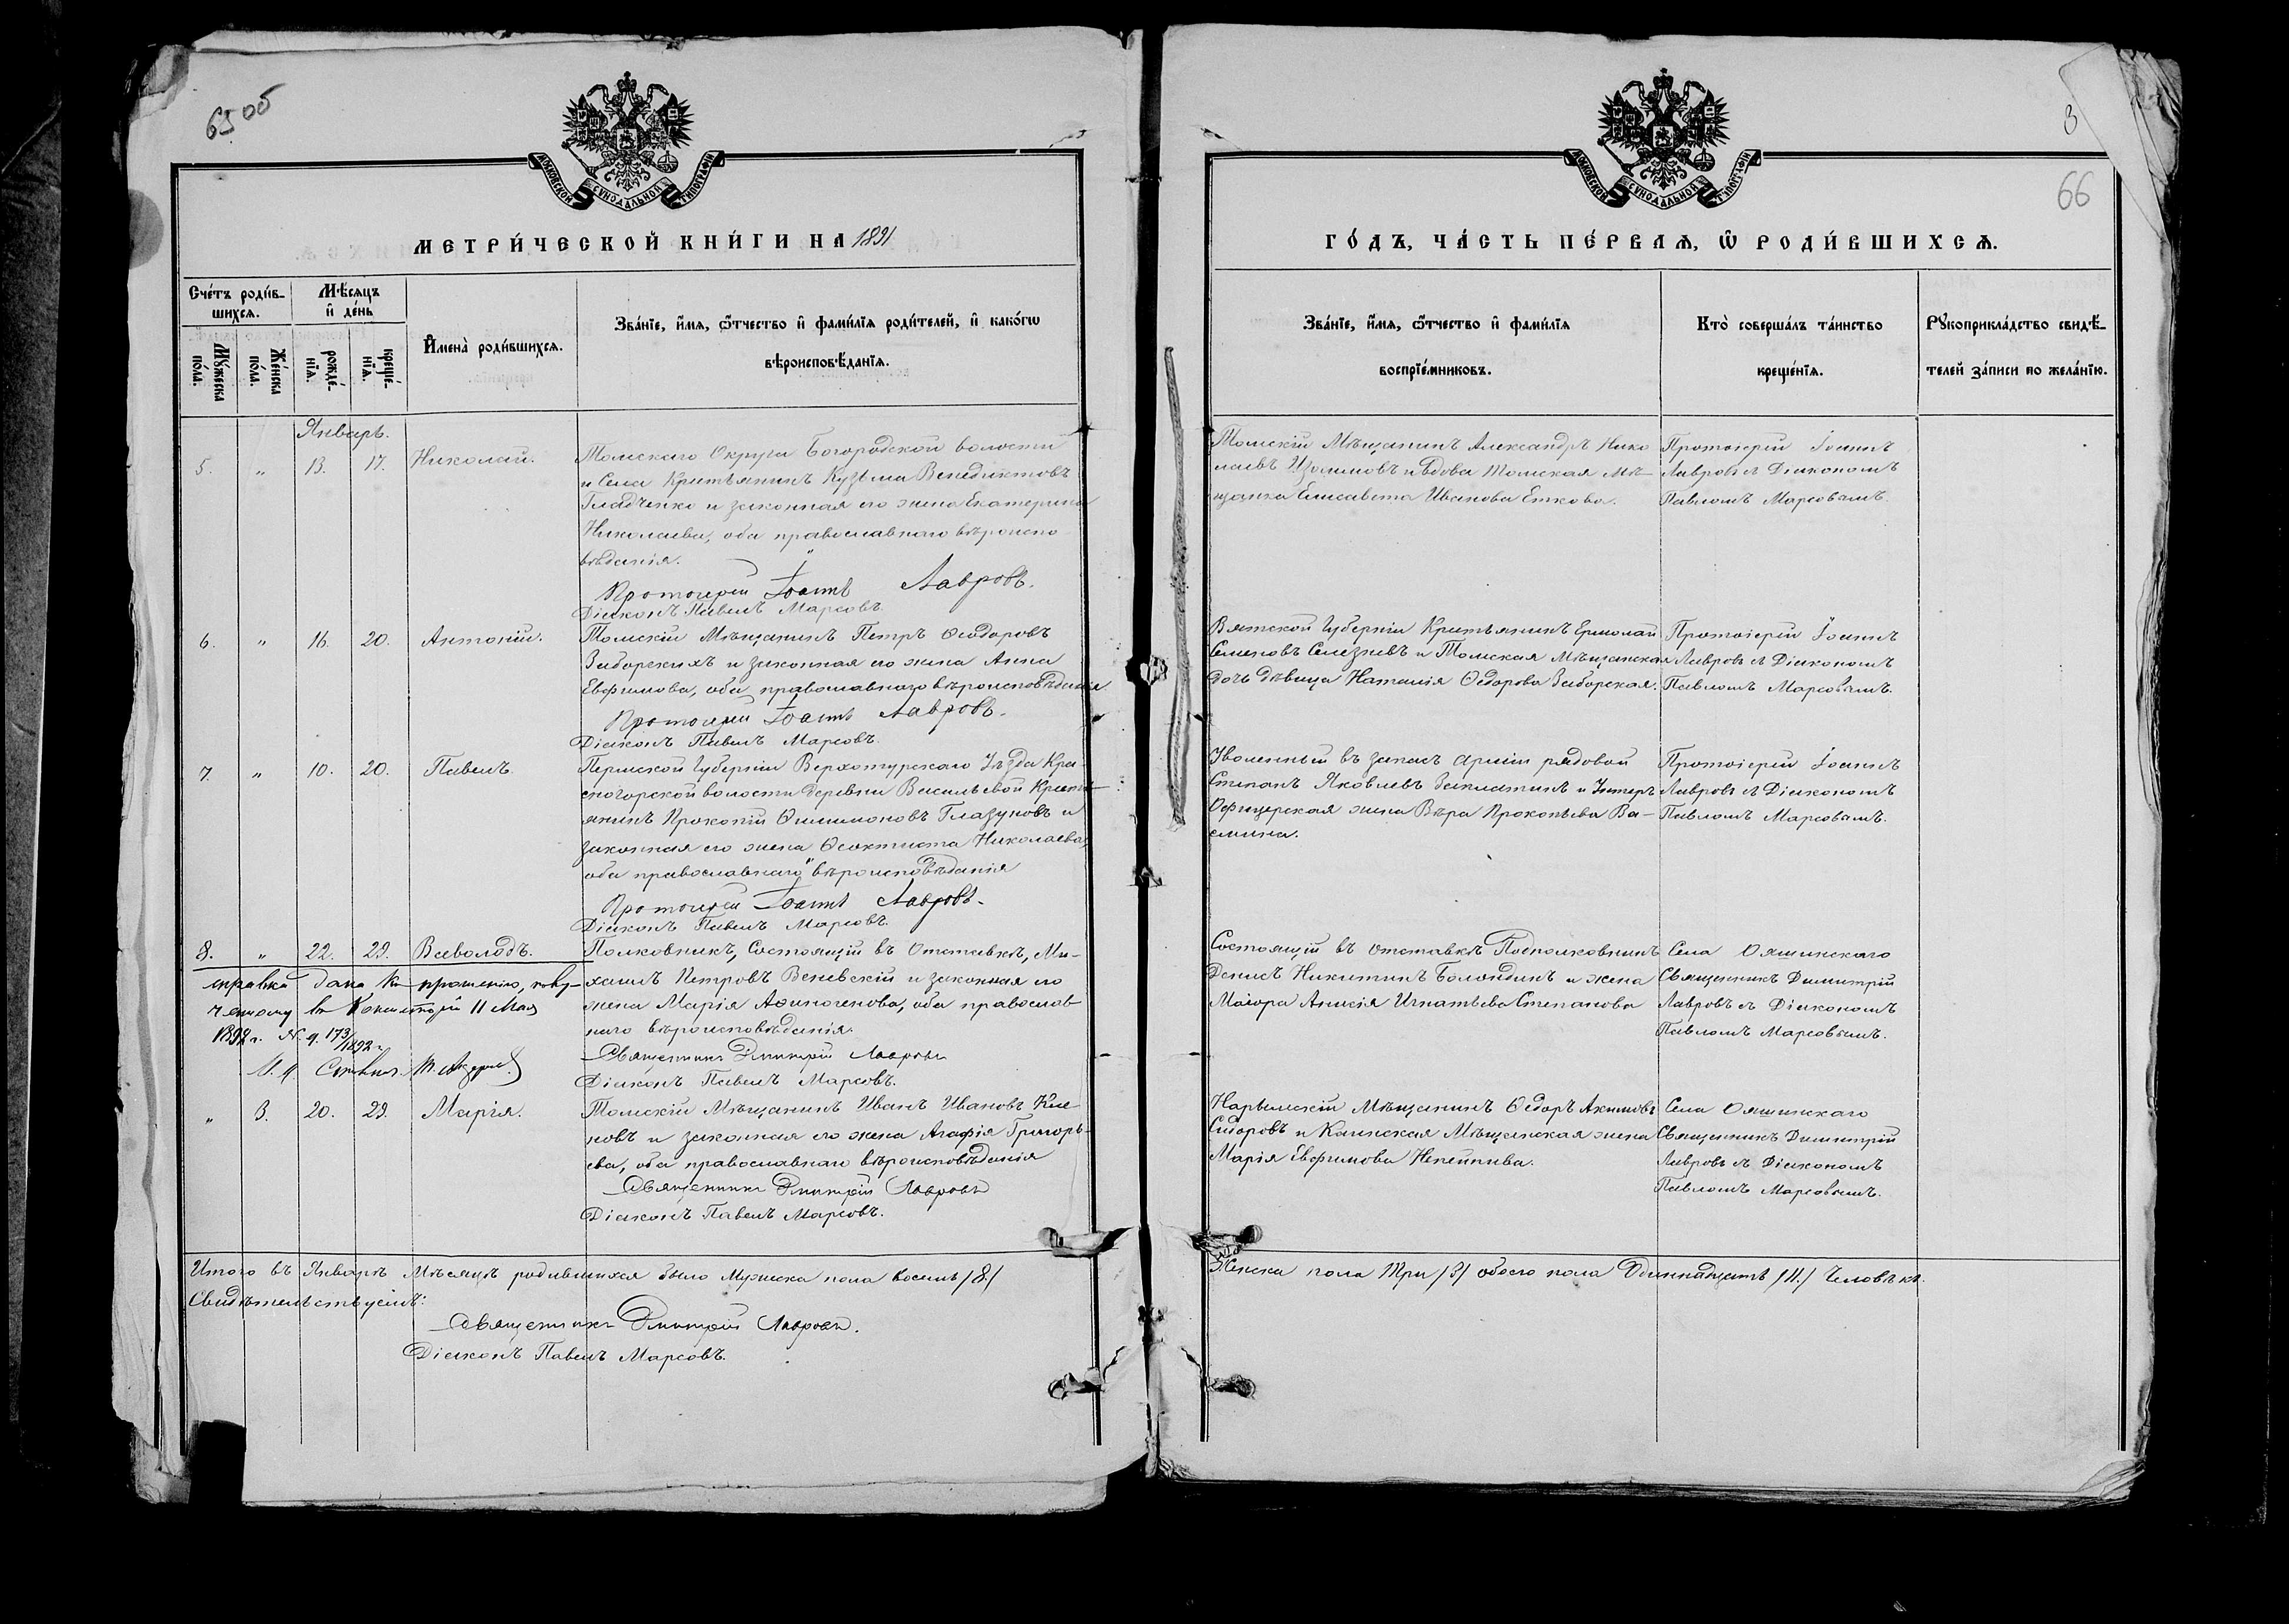 65 об
МОСКОВСКОЙ СѴНОДАЛЬНОЙ ТИПОГРАФІИ
МЕТРИ́ЧЕСКОЙ КНИ́ГИ НА 1891
Сче́тъ роди́в-
шихсѧ.
Мѣ́сѧцъ
и҆ де́нь
Мꙋ́жеска
по́ла.
Же́нска
по́ла.
рожде́-
нїѧ.
креще́-
нїѧ.
И҆мена̀ роди́вшихсѧ.
Зва́нїе, и҆́мѧ, ѻ҆́тчество и҆ фами́лїѧ роди́телей, и҆ како́гѡ
вѣроисповѣ́данїѧ.
Январь.
5. " 13. 17. Николай.
Томскаго Округа Богородской волости
и Села Крестьянинъ Кузьма Венедиктовъ
Гладченко и законная его жена Екатерина
Николаева, оба православнаго вѣроиспо
вѣданія.
Протоіерей Іоаннъ Лавровъ.
Діаконъ Павелъ Марсовъ.
6. " 16. 20. Антоній.
Томскій Мѣщанинъ Петръ Ѳеодоровъ
Заборскихъ и законная его жена Анна
Евфимова, оба православнаго вѣроисповѣданія
Протоіерей Іоаннъ Лавровъ.
Діаконъ Павелъ Марсовъ.
7. " 10. 20. Павелъ
Пермской Губерніи Верхотурскаго Уѣзда Кра-
сногорской волости деревни Васильевой Кресть-
янинъ Прокопій Филимоновъ Глазуновъ и
законная его жена Ѳеоктиста Николаева,
оба православнаго вѣроисповѣданія
Протоіерей Іоаннъ Лавровъ.
Діаконъ Павелъ Марсовъ.
8. " 22. 29. Всеволодъ.
Полковникъ, Состоящій въ Отставкѣ, Ми-
хаилъ Петровъ Веневскій и законная его
жена Марія Аѳиногенова, оба православ
наго вѣроисповѣданія.
Священникъ Дмитрій Лавровъ
Діаконъ Павелъ Марсовъ.
справка дана по прошенію, полу-
ченному въ Консисторіи 11 Мая
1892 г. № 173/1892 г.
" 3. 20. 29. Марія.
Томскій Мѣщанинъ Иванъ Ивановъ
новъ и законная его жена Агафія Григорь-
ева, оба православнаго вѣроисповѣданія
Священникъ Дмитрій Лавровъ
Діаконъ Павелъ Марсовъ.
Итого въ Январѣ Мѣсяцѣ родившихся было Мужеска пола восемь /8/
Свидѣтельствуемъ:
Священникъ Дмитрій Лавровъ.
Діаконъ Павелъ Марсовъ.
3
66
МОСКОВСКОЙ СѴНОДАЛЬНОЙ ТИПОГРАФІИ
ГО́ДЪ, ЧА́СТЬ ПЕ́РВАѦ, Ѡ҆ РОДИ́ВШИХСѦ.
Зва́нїе, и҆́мѧ, ѻ҆́тчество и҆ фами́лїѧ
воспрїе́мниковъ.
Кто̀ соверша́лъ та́инство
креще́нїѧ.
Рꙋкоприкла́дство свидѣ́-
телей за́писи по жела́нїю.
Томскій Мѣщанинъ Александръ Нико
лаевъ Изосимовъ и вдова Томская Мѣ-
щанка Елисавета Иванова Еткова.
Протоіерей Іоаннъ
Лавровъ съ Діакономъ
Павломъ Марсовымъ.
Вятской Губерніи Крестьянинъ Ермолай
Семеновъ Селезневъ и Томская Мѣщанская
дочь дѣвица Наталія Ѳедорова Заборская.
Протоіерей Іоаннъ
Лавровъ съ Діакономъ
Павломъ Марсовымъ.
Уволенный въ запасъ арміи рядовой
Степанъ Яковлевъ Заплатинъ и Унтеръ
Офицерская жена Вѣра Прокопьева Ва-
сина.
Протоіерей Іоаннъ
Лавровъ съ Діакономъ
Павломъ Марсовымъ.
Состоящій въ отставкѣ Подполковникъ
Денисъ Никитинъ Болондинъ и жена
Маіора Анисія Игнатьева Степанова
Села Ояшинскаго
Священникъ Димитрій
Лавровъ съ Діакономъ
Павломъ Марсовымъ.
Нарымскій Мѣщанинъ Ѳедоръ Акимовъ
Сидоровъ и Каинская Мѣщанская жена
Марія Евфимова Непеинива.
Села Ояшинскаго
Священникъ Димитрій
Лавровъ съ Діакономъ
Павломъ Марсовымъ.
Женска пола Три /3/ обоего пола Одиннадцать /11/ Человѣкъ.